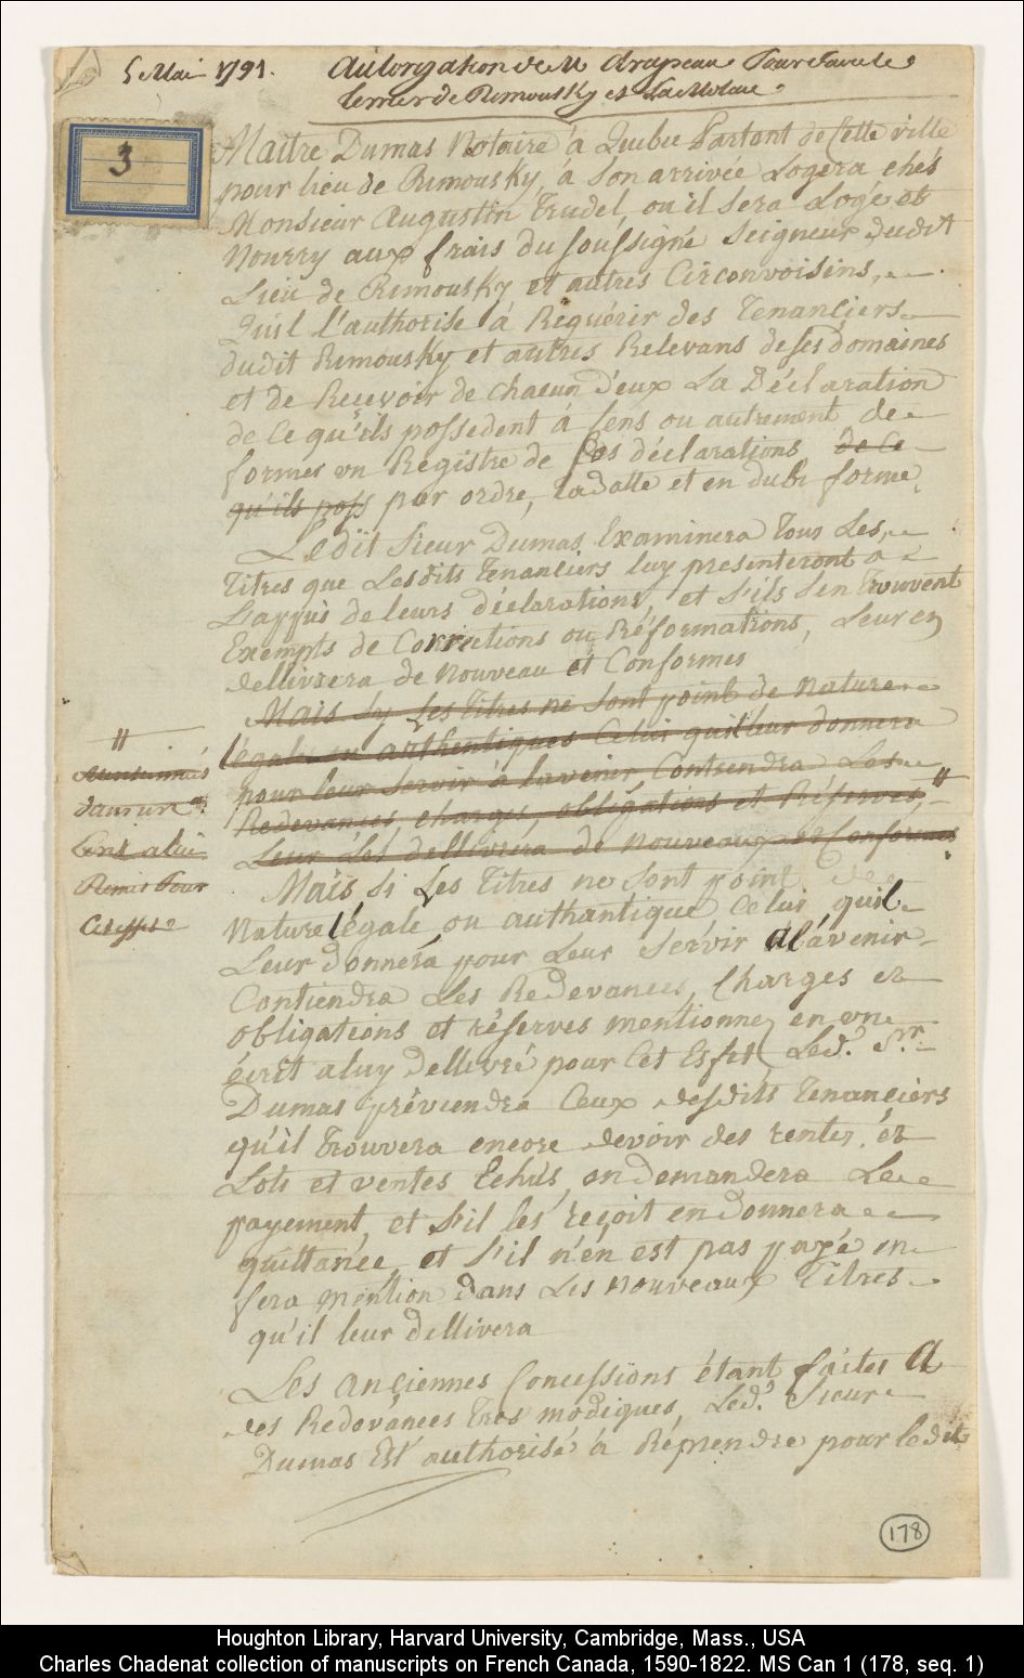 5 Mai 1791. Authorization de M Drapeau Pour faire le
terrier de Rimousky et La Molaie
3
Maitre Dumas Notaire à Quebec Partant de Cette ville
pour lieu de Rimousky, à son arrivée Logera chés
Monsieur Augustin Trudel, ou il sera Logé et
Nourry aux frais du soussigné Seigneur dudit
Lieu de Rimousky et autres Circonvoisins,
Quil l'authorise à Requérir des Tenanciers
dudit Rimousky et autres Relevans de ses domaines
et de Recevoir de chacun d'eux La Déclaration
de Ce qu'ils possedent à Cens ou autrement de
former un Registre de Ces déclarations de Ce
qu'ils poss par ordre, Ladatte et en dube forme,
Ledit Sieur Dumas Examinera Tous Les
Titres que Lesdits Tenanciers luy presenteront a
L'appui de leurs déclarations, et s'ils s'en trouvent
Exempts de Corrections ou Réformations, Leur en
dellivrera de Nouveau et Conformes
Mais sy Les Titres ne sont point de Nature
légale ou authentiques Celui quil leur donnera
pour leur servir à lavenir, Contiendra Les
Redevances, charges, obligations et Réserves, "
Leur Les dellivrera de Nouveaux et Conformes
"
mentionnés
dans un
Ecrit alui
Remis Pour
Cet effet
Mais si Les Titres ne sont point de
Nature légale ou authantique Celui quil
Leur donnera pour Leur servir al'avenir
Contiendra Les Redevances, Charges et
obligations et réserves mentionnez en un
écrit a luy Dellivré pour Cet Esfet, Led. Sr.
Dumas préviendra Ceux desdits Tenanciers
qu'il Trouvera encore devoir des rentes et
Lots et ventes Echus, en demandera Le
payement, et s'il les reçoit en donnera
quittance, et s'il n'en est pas payé en
fera mention dans Les Nouveaux Titres
qu'il leur dellivera
Les anciennes Concessions étant faites A
des Redevances tres modiques, Led. Sieur
Dumas Est authorisé à Reprendre pour ledit
178
Houghton Library, Harvard University, Cambridge, Mass., USA
Charles Chadenat collection of manuscripts on French Canada, 1590-1822. MS Can 1 (178, seq. 1)